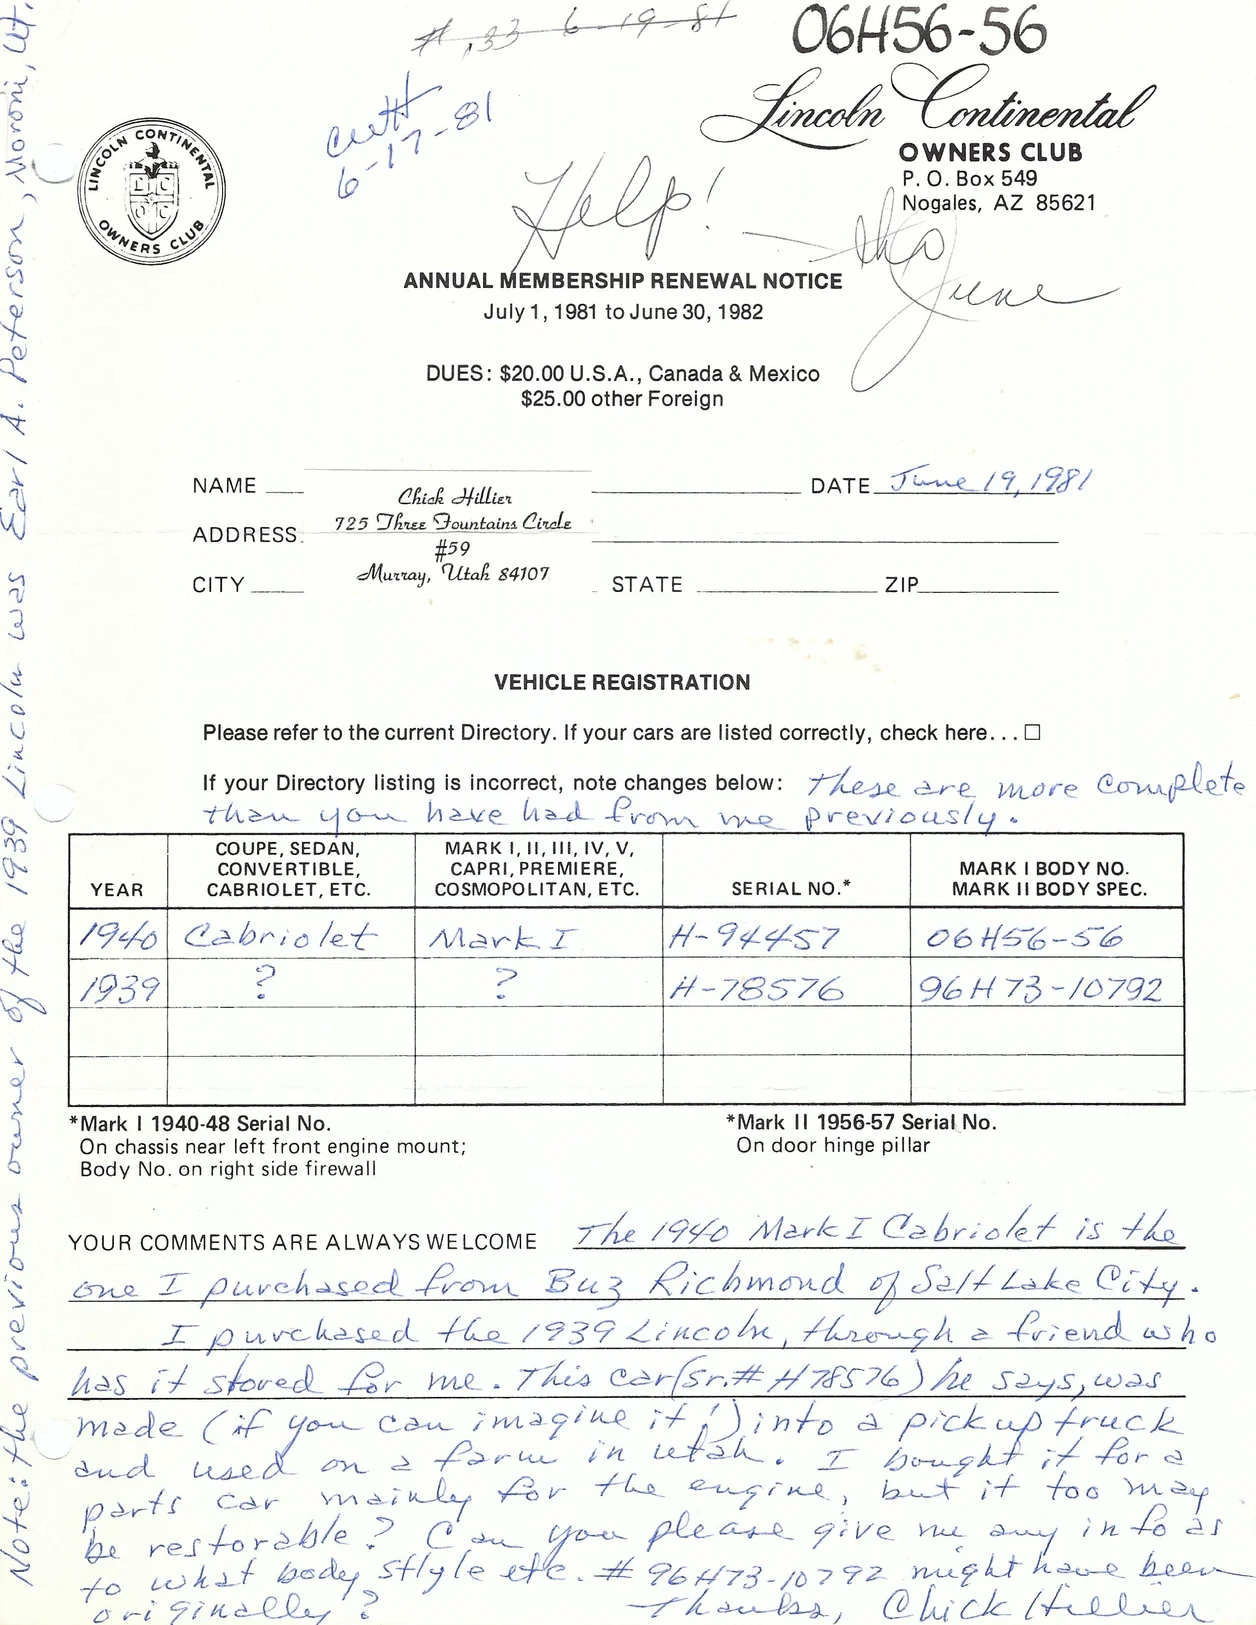 #.33 6-19-81
06H56-56
6-17-81
Lincoln Continental
OWNERS CLUB
P. O. Box 549
Nogales, AZ 85621
LINCOLN CONTINENTAL
OWNERS CLUB
L C
O C
Help!
June
ANNUAL MEMBERSHIP RENEWAL NOTICE
July 1, 1981 to June 30, 1982
DUES: $20.00 U.S.A., Canada & Mexico
$25.00 other Foreign
NAME Chick Hillier DATE June 19, 1981
ADDRESS 725 Three Fountains Circle
#59
CITY Murray, Utah 84107 STATE ZIP
VEHICLE REGISTRATION
Please refer to the current Directory. If your cars are listed correctly, check here...
If your Directory listing is incorrect, note changes below: These are more complete
than you have had from me previously.
YEAR COUPE, SEDAN, CONVERTIBLE, CABRIOLET, ETC. MARK I, II, III, IV, V, CAPRI, PREMIERE, COSMOPOLITAN, ETC. SERIAL NO.* MARK I BODY NO. MARK II BODY SPEC.
1940 Cabriolet Mark I H-94457 06H56-56
1939 ? ? H-78576 96H73-10792
*Mark I 1940-48 Serial No.
On chassis near left front engine mount;
Body No. on right side firewall
*Mark II 1956-57 Serial No.
On door hinge pillar
YOUR COMMENTS ARE ALWAYS WELCOME The 1940 Mark I Cabriolet is the
one I purchased from Buz Richmond of Salt Lake City.
I purchased the 1939 Lincoln, through a friend who
has it stored for me. This car (Sr.# H78576) he says, was
made (if you can imagine it!) into a pickup truck
and used on a farm in Utah. I bought it for a
parts car mainly for the engine, but it too may
be restorable? Can you please give me any info as
to what body stlyle etc. # 96H73-10792 might have been
originally? Thanks, Chick Hillier
Note: the previous owner of the 1939 Lincoln was Earl A. Peterson, Moroni, Ut.